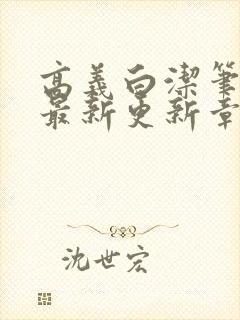 高義白潔筆
最新更新章
沈世宏